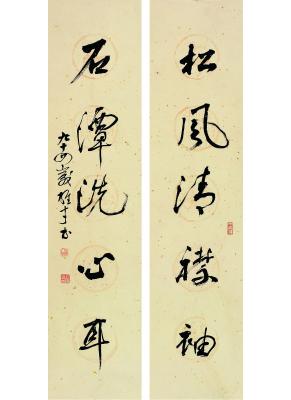 松風清襟袖
石潭洗心耳
九十四歲雄才書